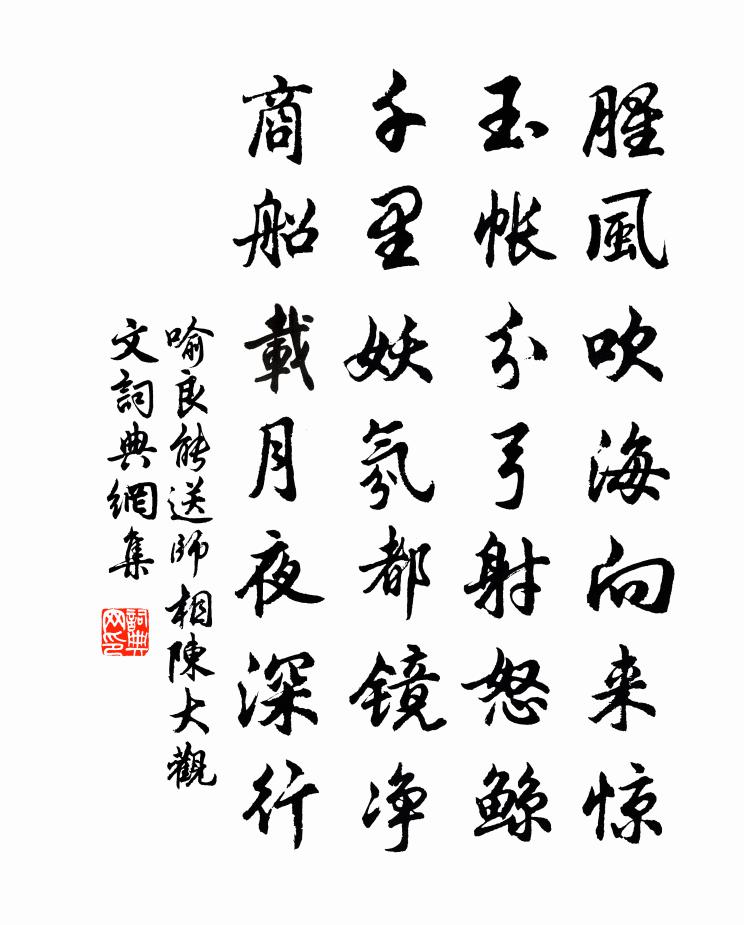 腥風吹海向来惊
玉帐分弓射怒鲸
千里妖氛都镜净
商船載月夜深行
喻良能送師相陳大觀
文詞典網集
詞典網印